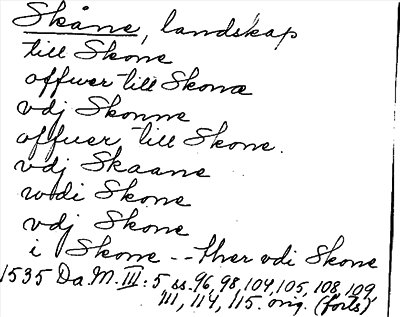 Skåne, landskap
till Skone
offuer till Skonæ
vdj Skonne
offuer till Skone.
vdj Skaane
wdi Skone
vdj Skone
i Skone -- ther vdi Skone
1535 Da. M. III: 5 ss. 96, 98, 104, 105, 108, 109
111, 114, 115. orig. (forts)